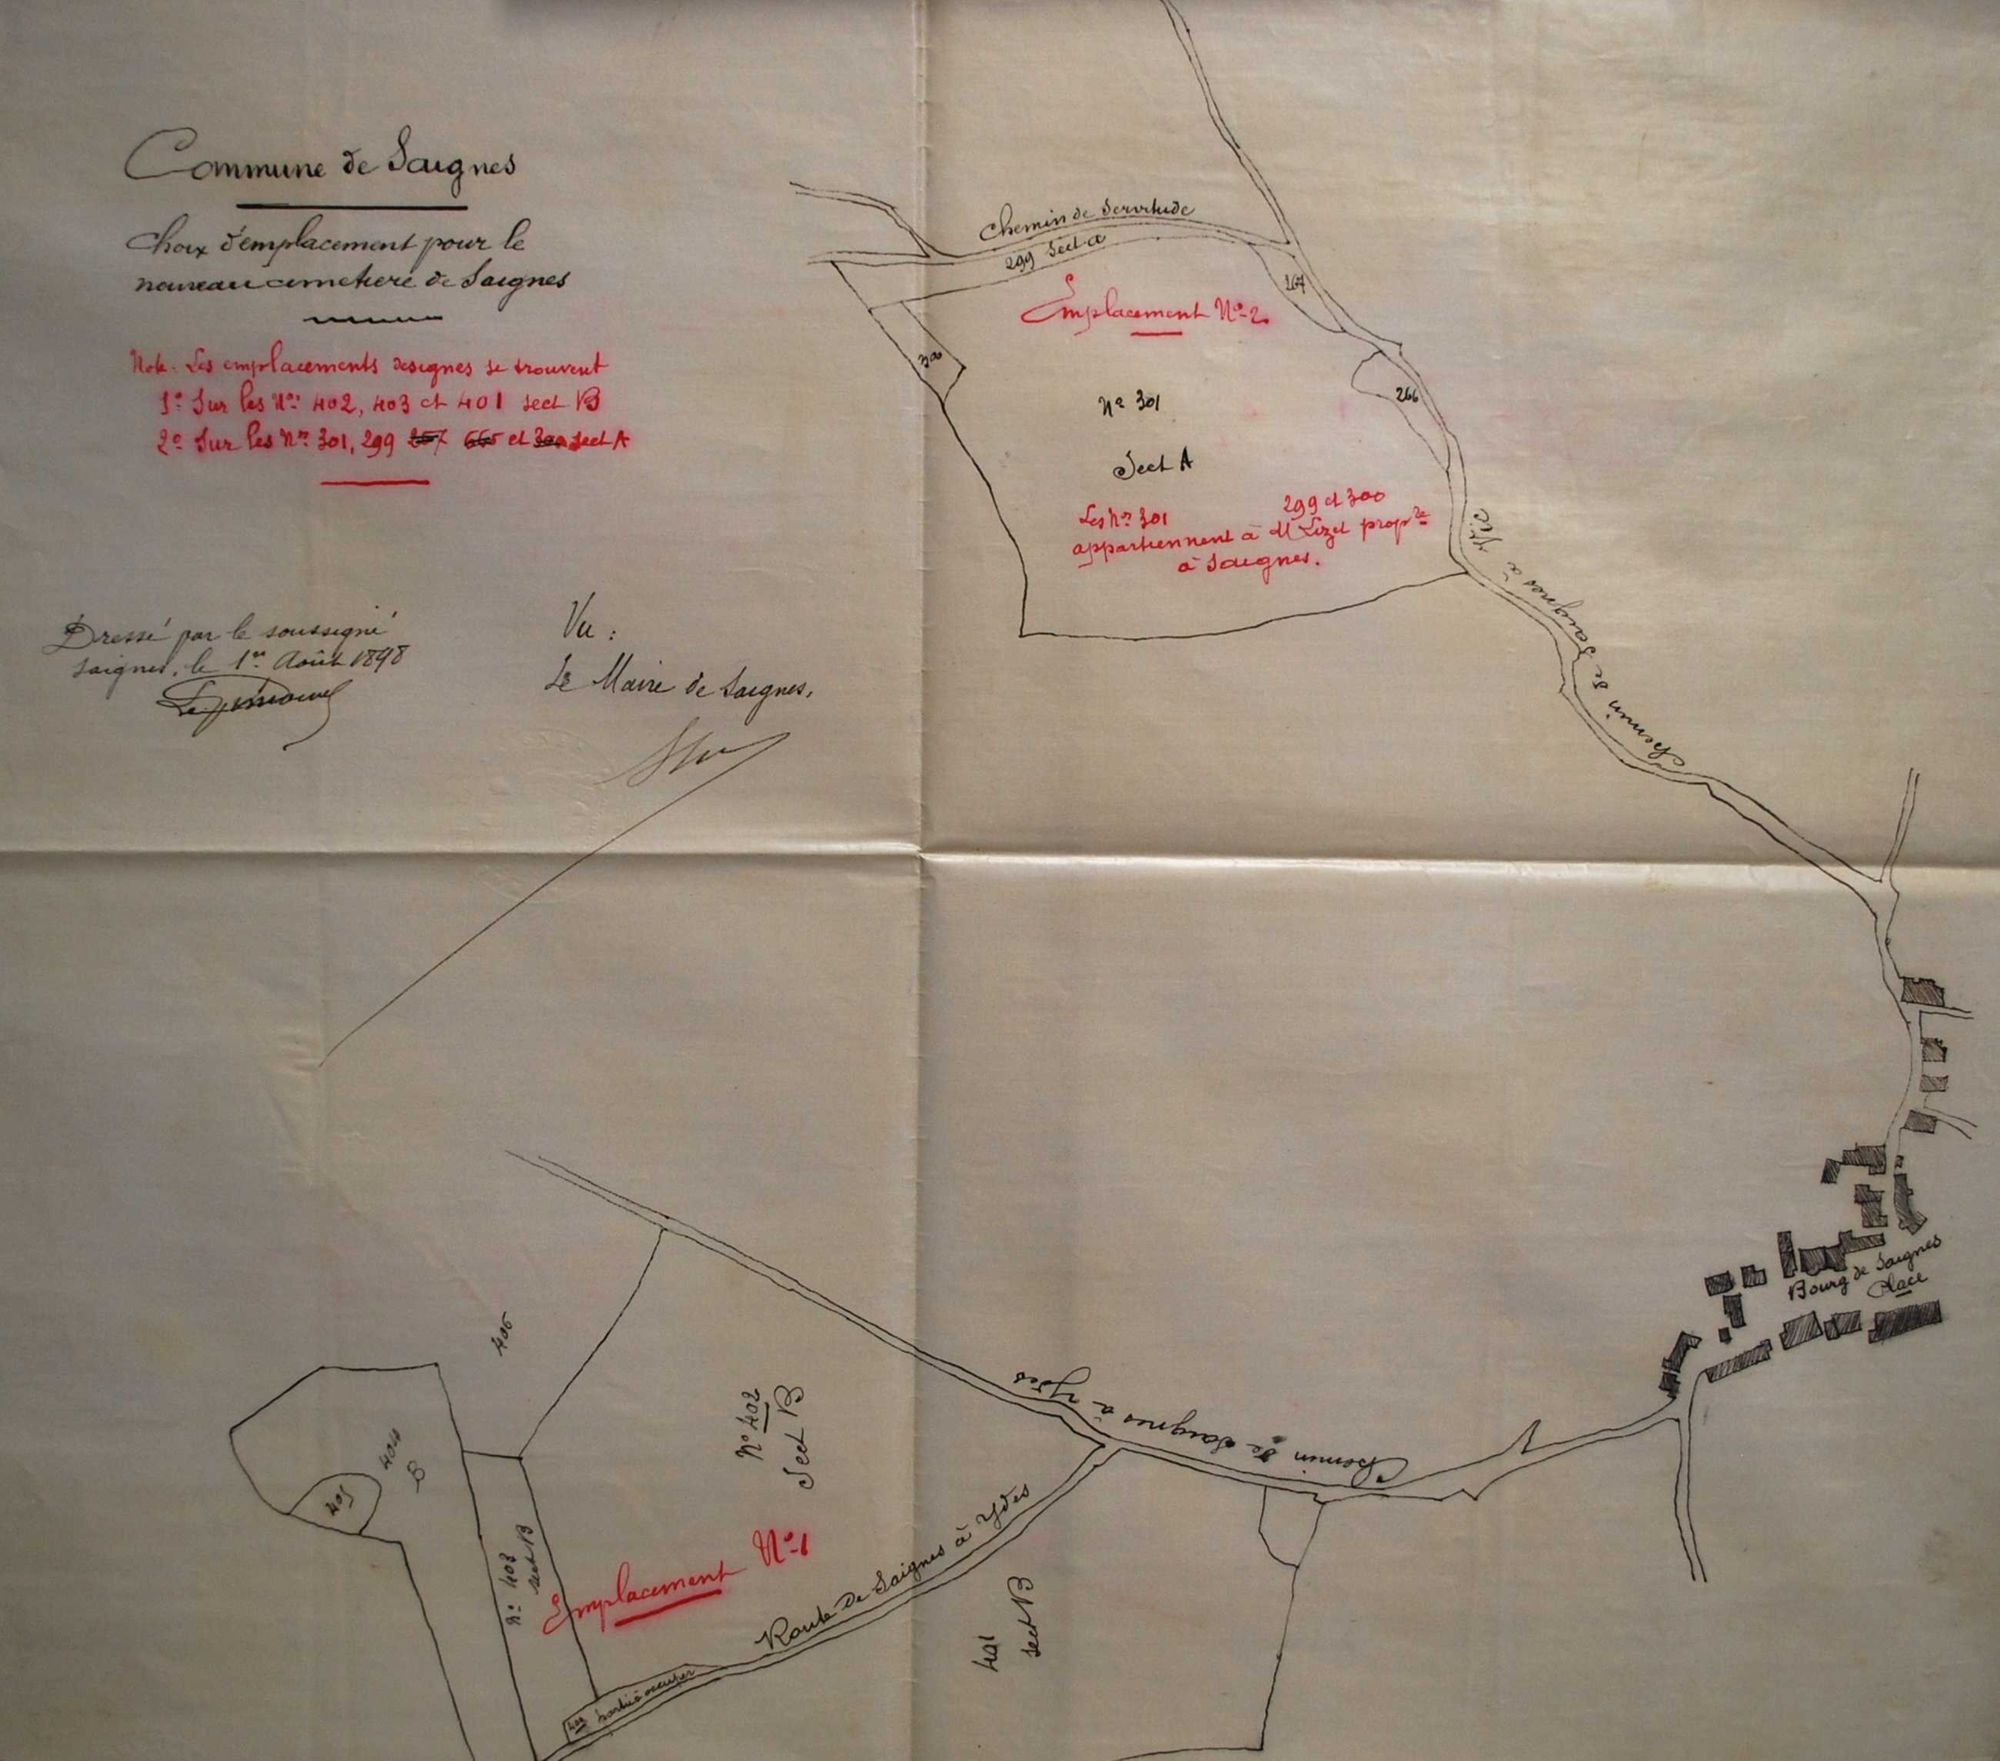 Commune de Saignes
Choix d'emplacement pour le
nouveau cimetière de Saignes
Note. Les emplacements designes se trouvent
1º Sur les Nos 402, 403 et 401 sect B
2º Sur les Nos 301, 299 267 et 300 sect A
Dressé par le soussigné
Saignes, le 1er Août 1898
Vu :
Le Maire de Saignes,
Chemin de Servitude
299 Sect a
Emplacement Nº 2
267
300
266
Nº 301
Sect A
Les Nos 301 299 et 300
appartiennent à M Lizet propre
à Saignes.
Chemin de Saignes à Vic
Bourg de Saignes
Place
Chemin de Saignes à Ydes
406
404
B
405
Nº 402
Sect B
Nº 403
sect B
Emplacement Nº 1
Route de Saignes à Ydes
402
401
sect B